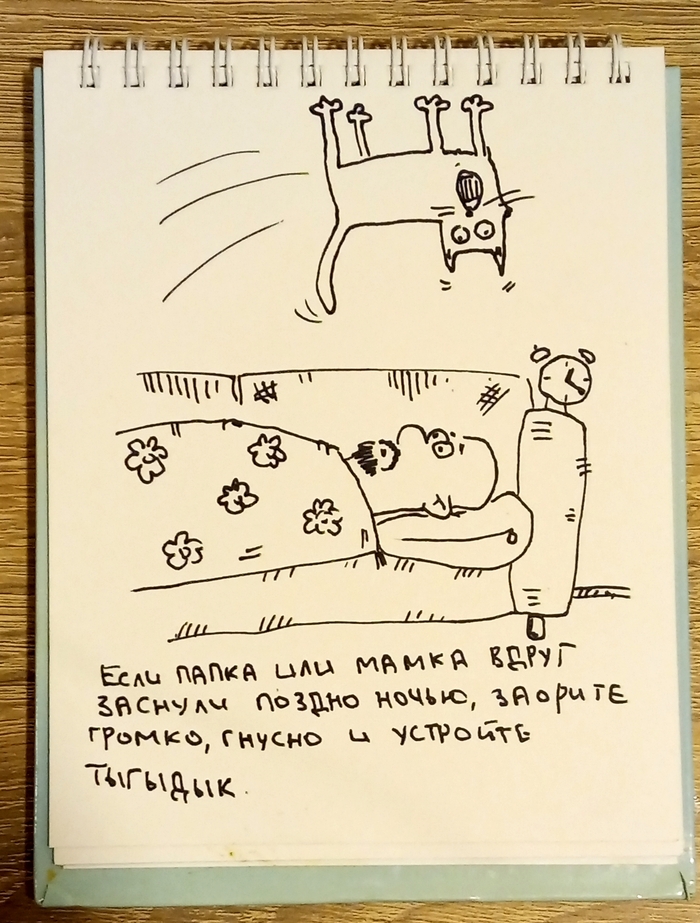 Если папка или мамка вдруг
заснули поздно ночью, заорите
громко, гнусно и устройте
тыгыдык.